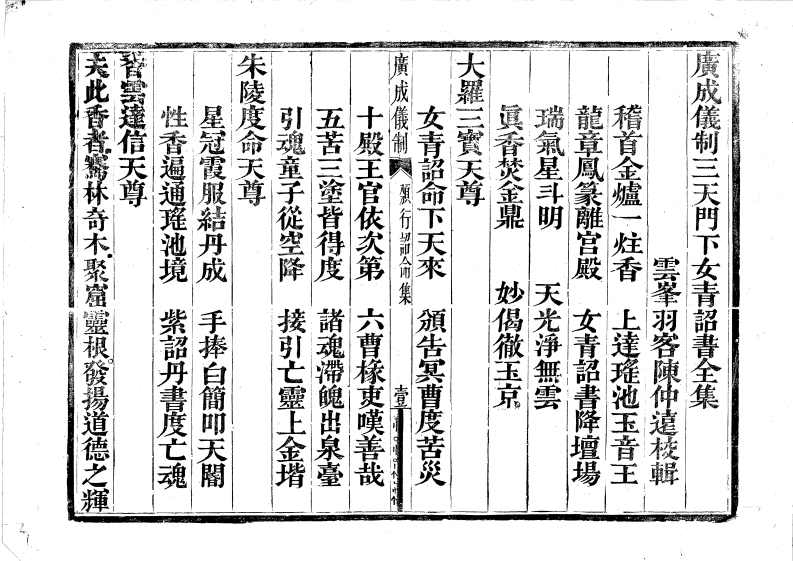 廣成儀制三天門下女青詔書全集
雲峯羽客陳仲遠校輯
稽首金爐一炷香　上達瑤池玉音王
龍章鳳篆離宮殿　女青詔書降壇場
瑞氣星斗明　天光淨無雲
眞香焚金鼎　妙偈徹玉京
大羅三寶天尊
女青詔命下天來　頒告冥曹度苦災
廣成儀制　頒行詔命集　壹
十殿王官依次第　六曹椽吏嘆善哉
五苦三塗皆得度　諸魂滯魄出泉臺
引魂童子從空降　接引亡靈上金堦
朱陵度命天尊
星冠霞服結丹成　手捧白簡叩天閽
性香遍通瑤池境　紫詔丹書度亡魂
香雲達信天尊
夫此香者鶱林奇木聚窟靈根發揚道德之輝